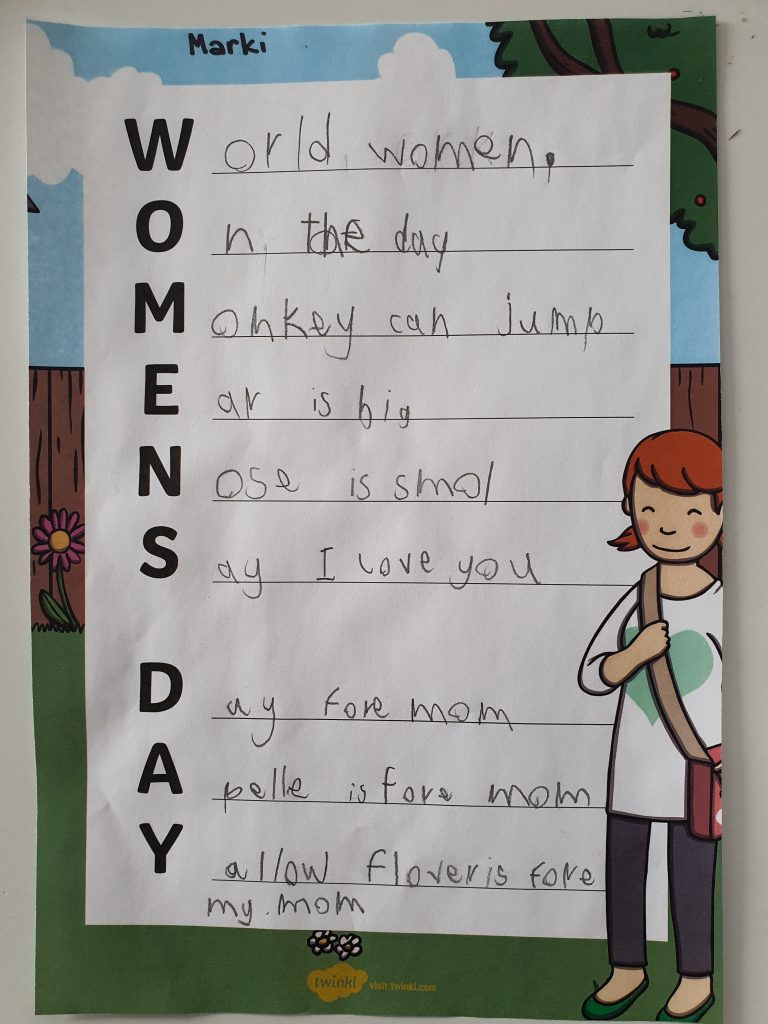 Marki
World women,
On the day
Monkey can jump
Ear is big
Nose is smol
Say I love you
Day fore mom
Apelle is fore mom
Yallow floveris fore
my. mom
twinkl visit twinkl.com